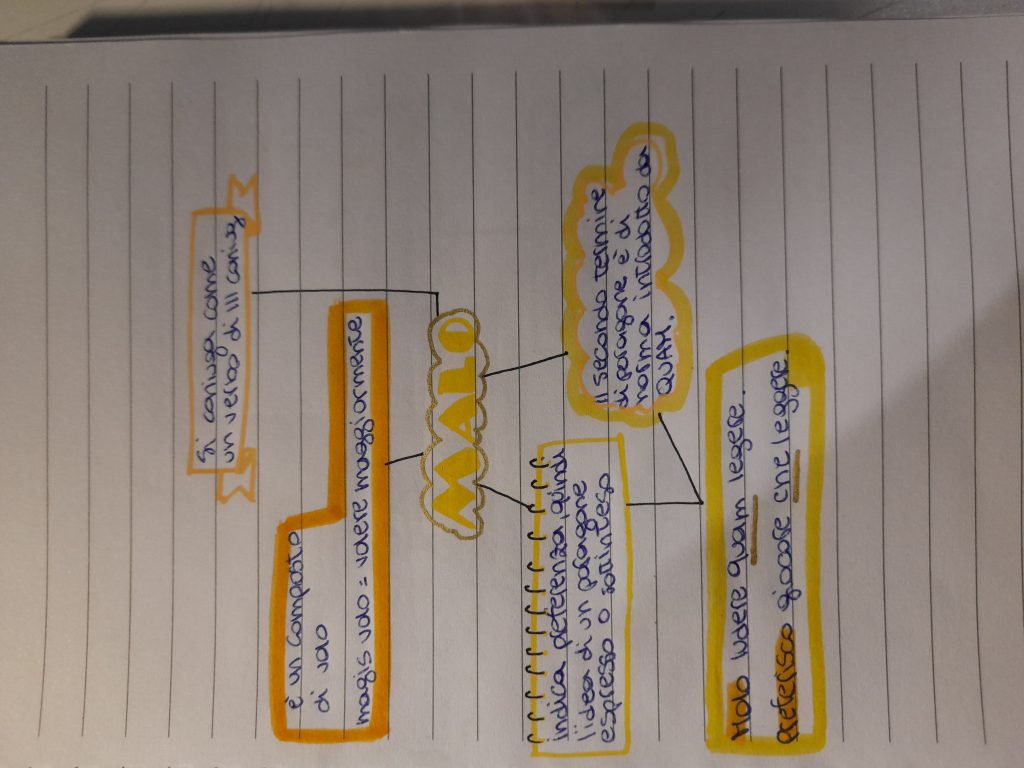 Si coniuga come
un verbo di III coniug
è un composto
di volo
magis volo = volere maggiormente
MALO
indica preferenza, quindi
l'idea di un paragone
espresso o sottinteso
Il secondo termine
di paragone è di
norma introdotto da
QUAM.
Malo ludere quam legere.
preferisco giocare che leggere.